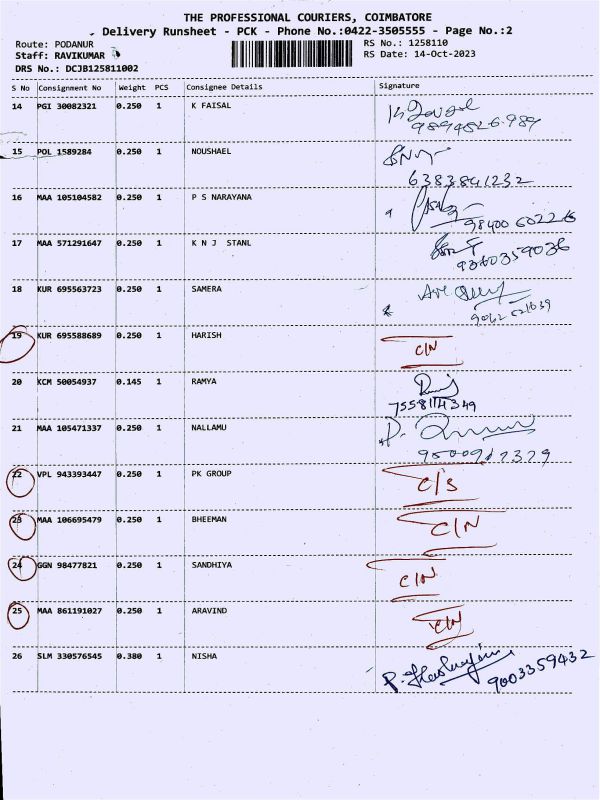 THE PROFESSIONAL COURIERS, COIMBATORE
Delivery Runsheet - PCK - Phone No.:0422-3505555 - Page No.:2
Route: PODANUR RS No.: 1258110
Staff: RAVIKUMAR RS Date: 14-Oct-2023
DRS No.: DCJB125811002
S No Consignment No Weight PCS Consignee Details Signature
14 PGI 30082321 0.250 1 K FAISAL
15 POL 1589284 0.250 1 NOUSHAEL
6383841232
16 MAA 105104582 0.250 1 P S NARAYANA
98400 60226
17 MAA 571291647 0.250 1 K N J STANL
9360359036
18 KUR 695563723 0.250 1 SAMERA
19 KUR 695588689 0.250 1 HARISH
C/N
20 KCM 50054937 0.145 1 RAMYA
7558114349
21 MAA 105471337 0.250 1 NALLAMU
22 VPL 943393447 0.250 1 PK GROUP
C/S
23 MAA 106695479 0.250 1 BHEEMAN
C/N
24 GGN 98477821 0.250 1 SANDHIYA
C/N
25 MAA 861191027 0.250 1 ARAVIND
C/N
26 SLM 330576545 0.380 1 NISHA
9003359432